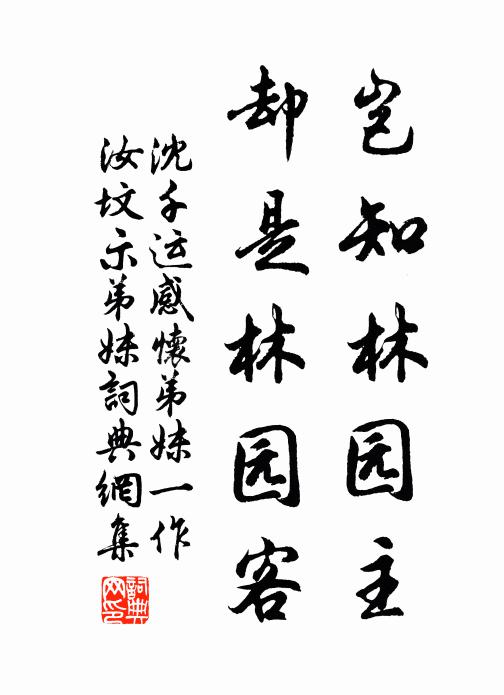 岂知林园主
却是林园客
沈千运感懷弟妹一作
汝坟示弟妹詞典網集
詞典
网印